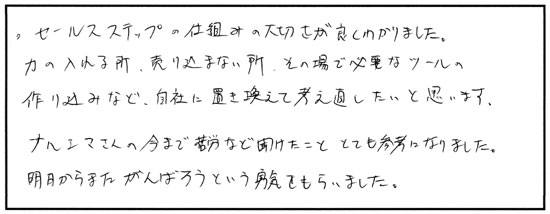 、セールスステップの仕組みの大切さが良くわかりました。
力の入れる所、売り込まない所、その場で必要なツールの
作り込みなど、自社に置き換えて考え直したいと思います。
ナルシマさんの今まで苦労など聞けたこと とても参考になりました。
明日からまた がんばろうという勇気をもらいました。